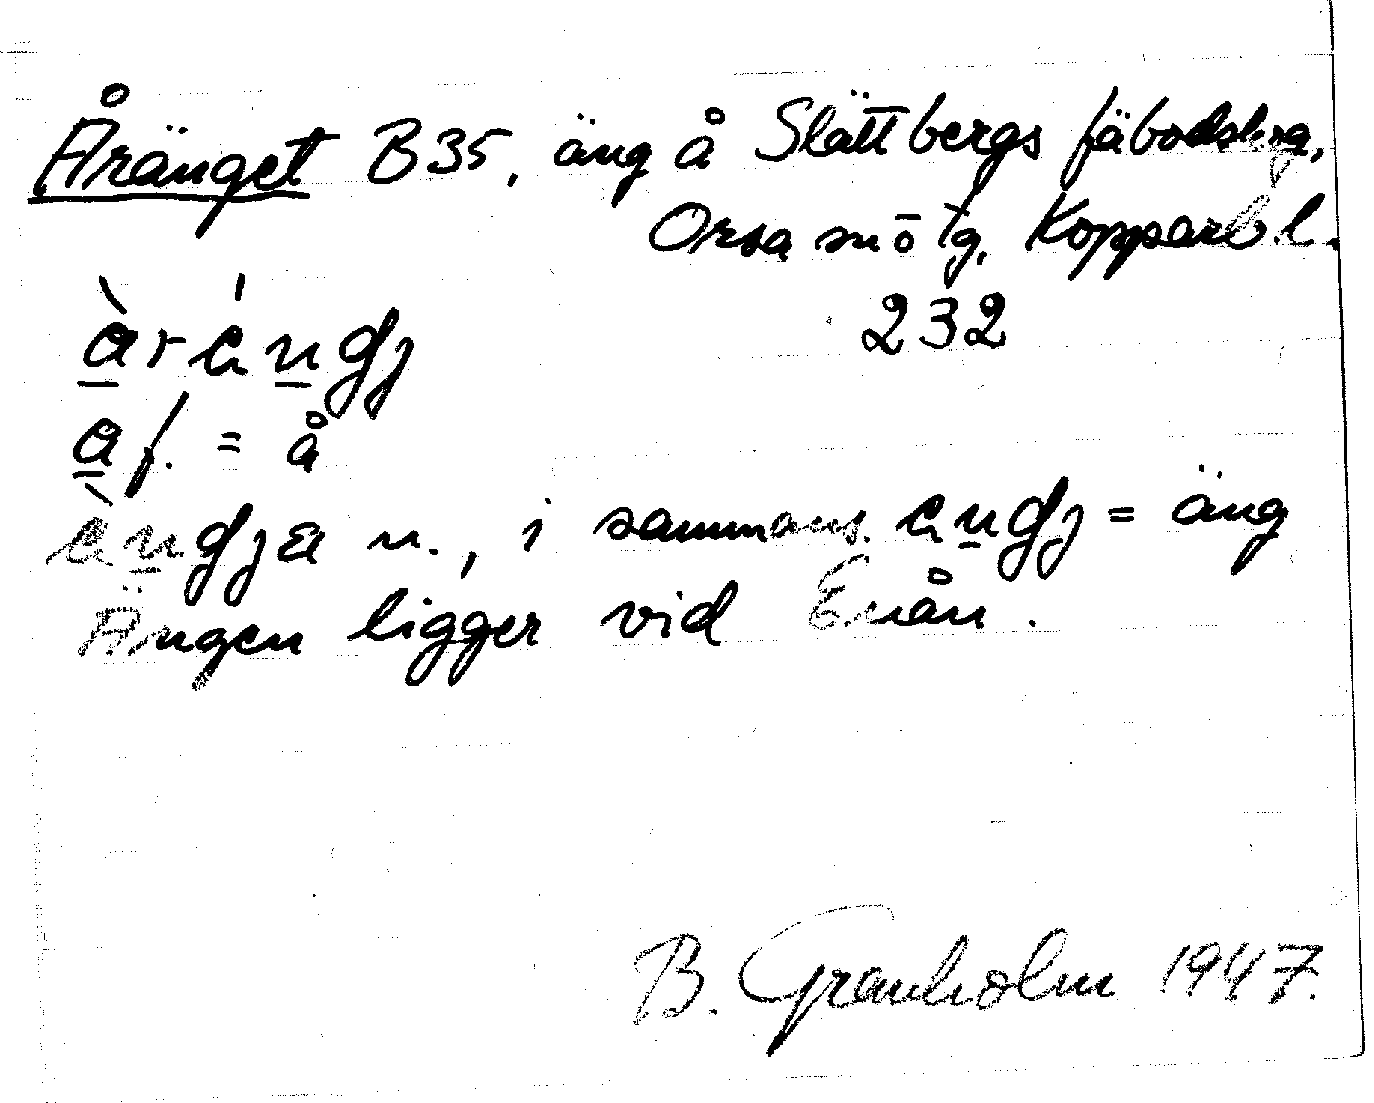 Åränget B35, äng å Slättbergs fäbodskog,
Orsa sn ō tg. Kopparb. l.
232
àrèngj
a f. = å
èngja n., i sammans. engj = äng
Ängen ligger vid Enån.
B. Granholm 1947.